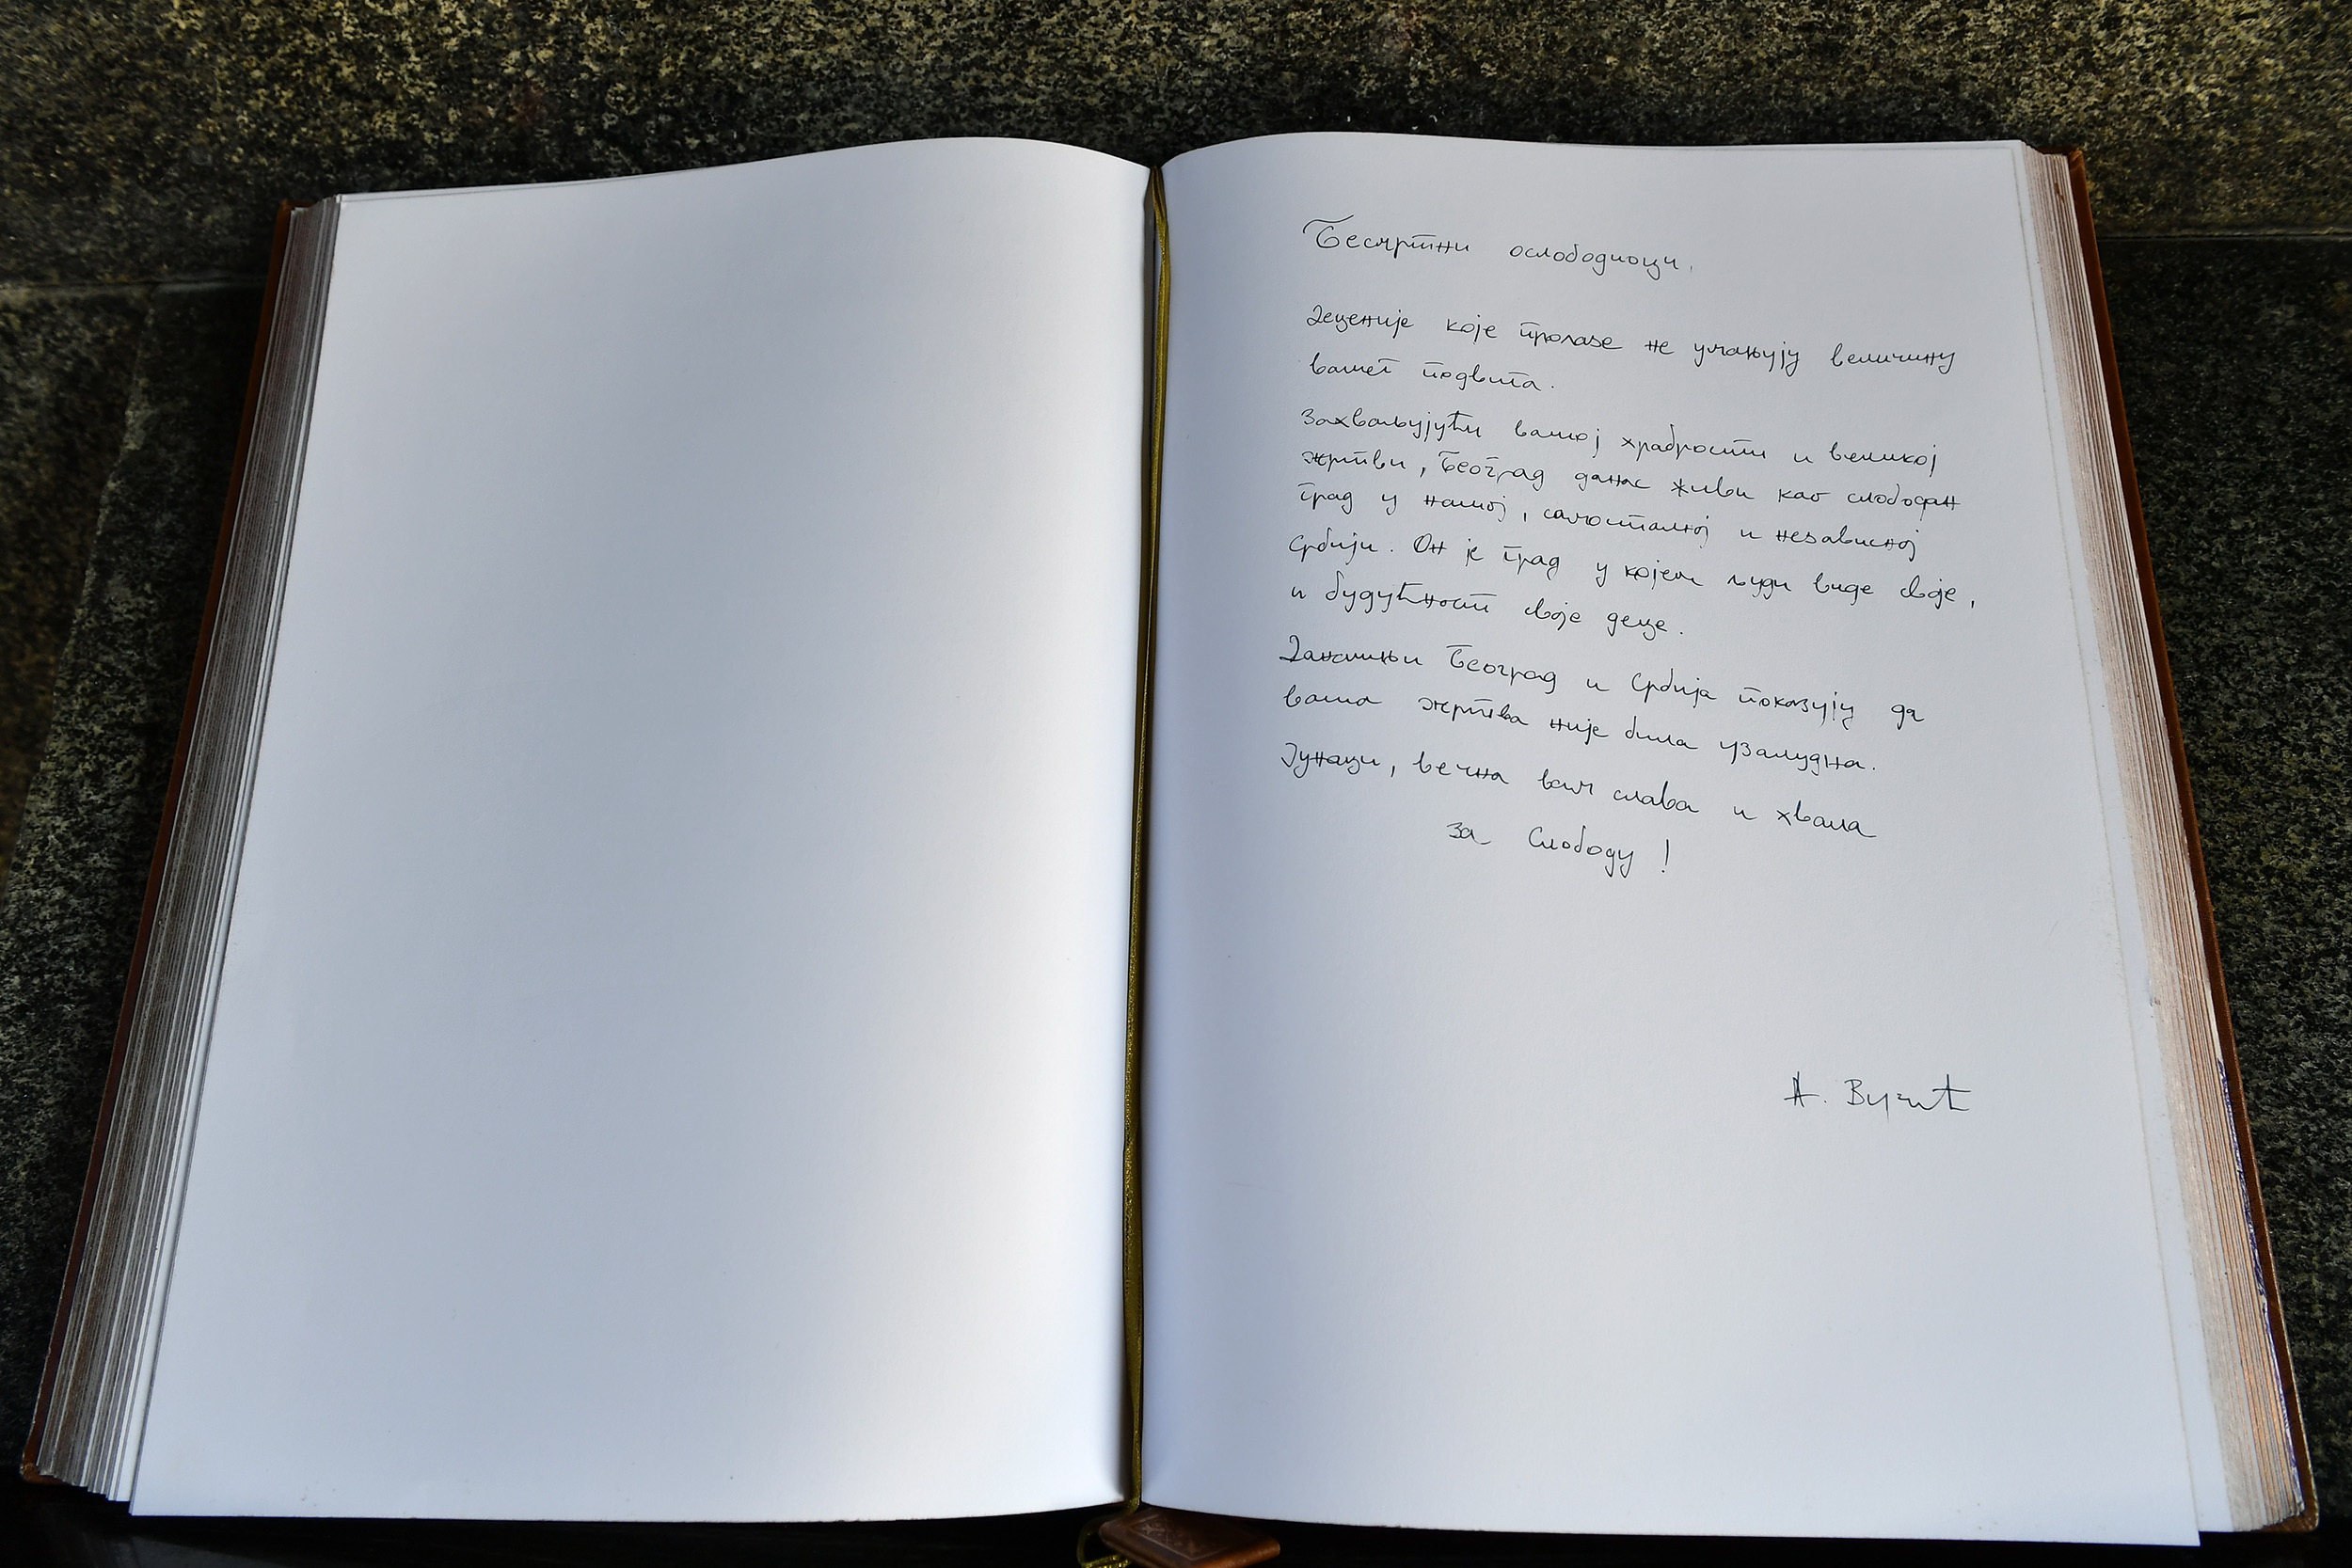 Бесмртни ослободиоци,
Деценије које пролазе не умањују величину
вашег подвига.
Захваљујући вашој храбрости и великој
жртви, Београд данас живи као слободан
град у нашој, самосталној и независној
Србији. Он је град у којем људи виде своје,
и будућност своје деце.
Данашњи Београд и Србија показују да
ваша жртва није била узалудна.
Јунаци, вечна вам слава и хвала
за Слободу!
А. Вучић